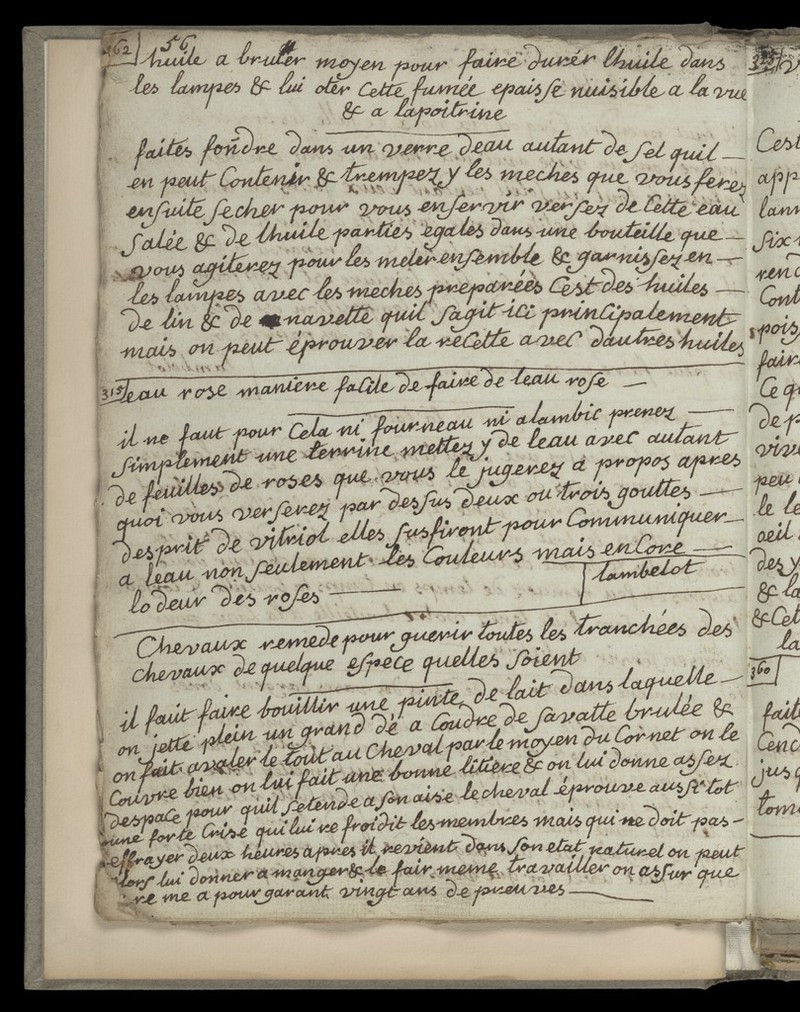 362 56
huile a bruler moyen pour faire durér lhuile dans
les lampes & lui otér Cette fumée epaisse nuisible a la vue
& a lapoitrine
faites fondre dans un verre deau autant de sel quil —
en peut Contenir & trempez y les meches que vous ferez
ensuite secher pour vous enservir versez de Cette eau
salée & de lhuile parties egales dans une bouteille que —
vous agiterez pour les meler ensemble & garnissez en —
les lampes avec les meches preparées Cest des huiles —
de lin & de navette quil sagit ici principalement
mais on peut éprouver la recette avec dautres huiles
315 eau rose maniere facile de faire de leau rose —
il ne faut pour Cela ni fourneau ni alambic prenez —
simplement une terrine mettez y de leau avec autant
de feuilles de roses que vous le jugerez a propos apres
quoi vous verserez par dessus deux ou trois gouttes —
desprit de vitriol elles susfiront pour Communiquer —
a leau non seulement les Couleurs mais encore —
lodeur des roses —
lambelot
Chevaux remede pour guerir toutes les tranchées des
chevaux de quelque espece quelles soient
il faut faire bouillir une pinte de lait dans laquelle —
on jette plein un grand dé a Coudre de savatte brulée &
on fait avaler le tout au Cheval par le moyen du Cornet on le
Couvre bien on lui fait une bonne litiere & on lui donne assez
despace pour quil setende a son aise le cheval éprouve aussi tot
une forte Crise qui lui refroidit les membres mais qui ne doit pas -
effrayer deux heures apres it revient dans son etat naturel on peut
lors lui donner a manger & le fair meme travailler on assur que
re me a pour garant vingt ans de preuves —
315
Cest
app
lann
six
rend
Cont
pois
faire
Ce q
de p
vive
peu
le le
oeil
dez y
& la
& Cet
la
360
fait
Cend
jusq
tom